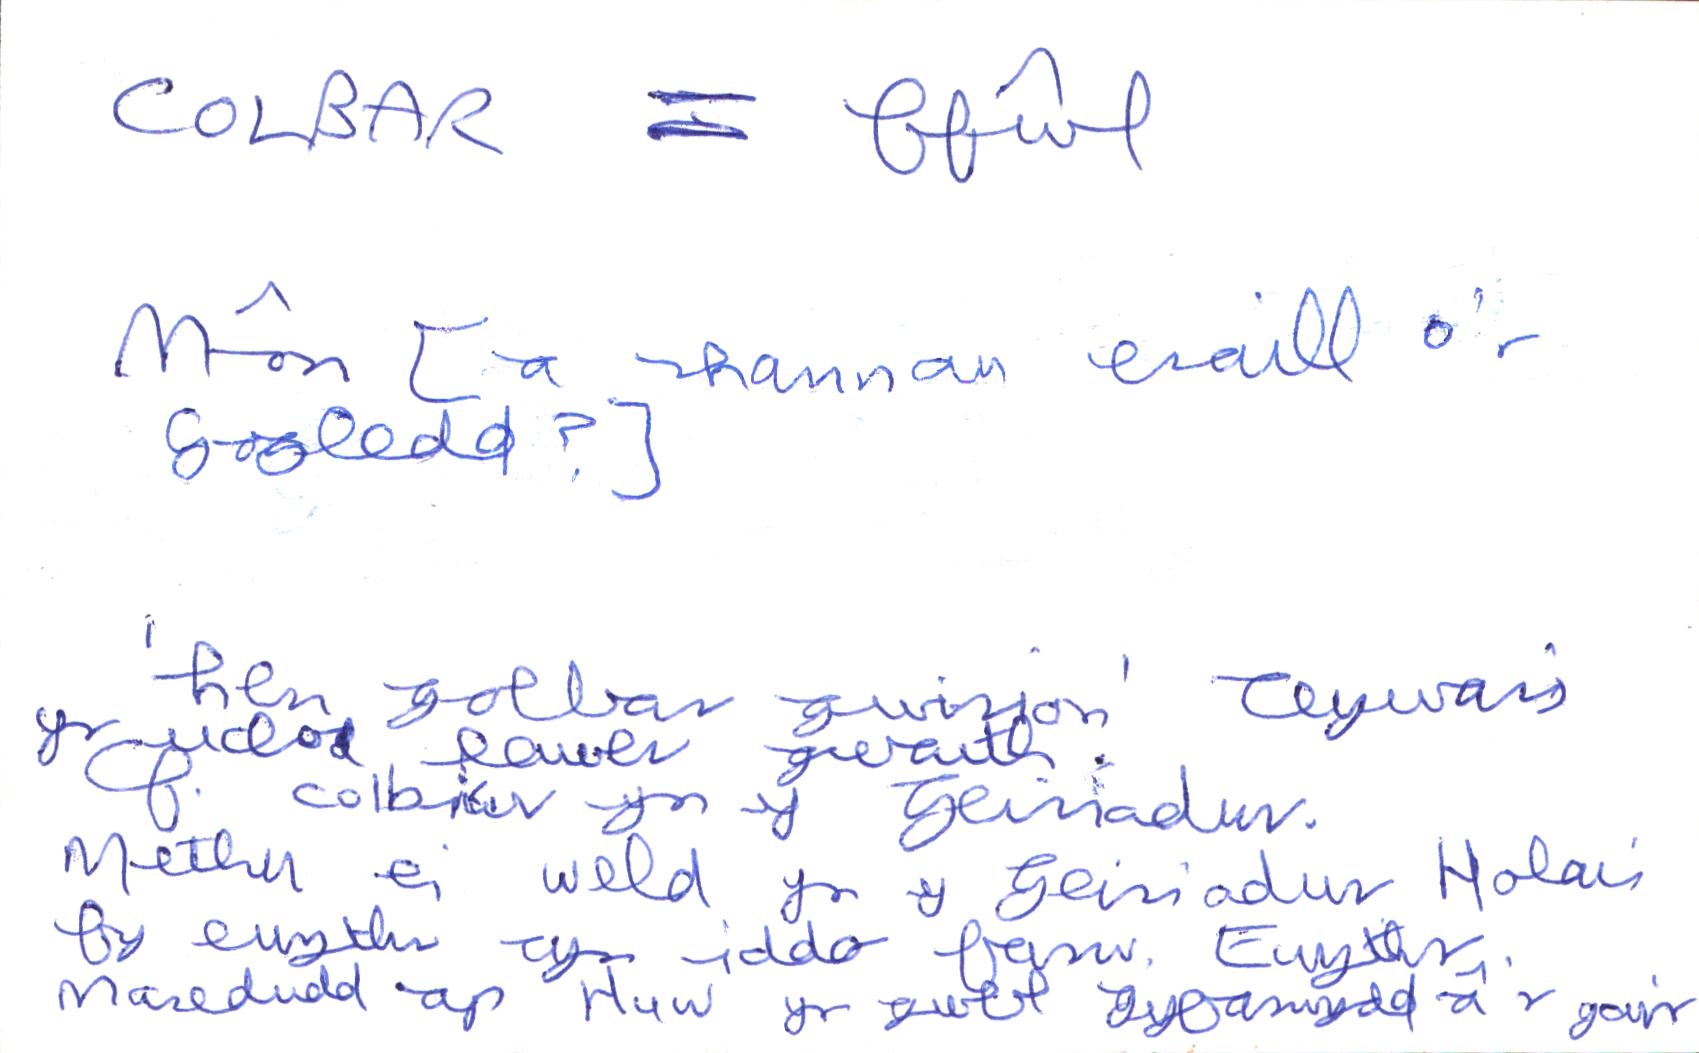 COLBAR = ffŵl
Môn [a rhannau eraill o'r
Gogledd?]
'hen golbar gwirion' Clywais
yr uchod lawer gwaith.
Cf. colbiwr yn y Geiriadur.
Methu ei weld yn y Geiriadur Holais
fy ewythr cyn iddo farw. Ewythr
Maredudd ap Huw yn gwbl gyfarwydd â'r gair